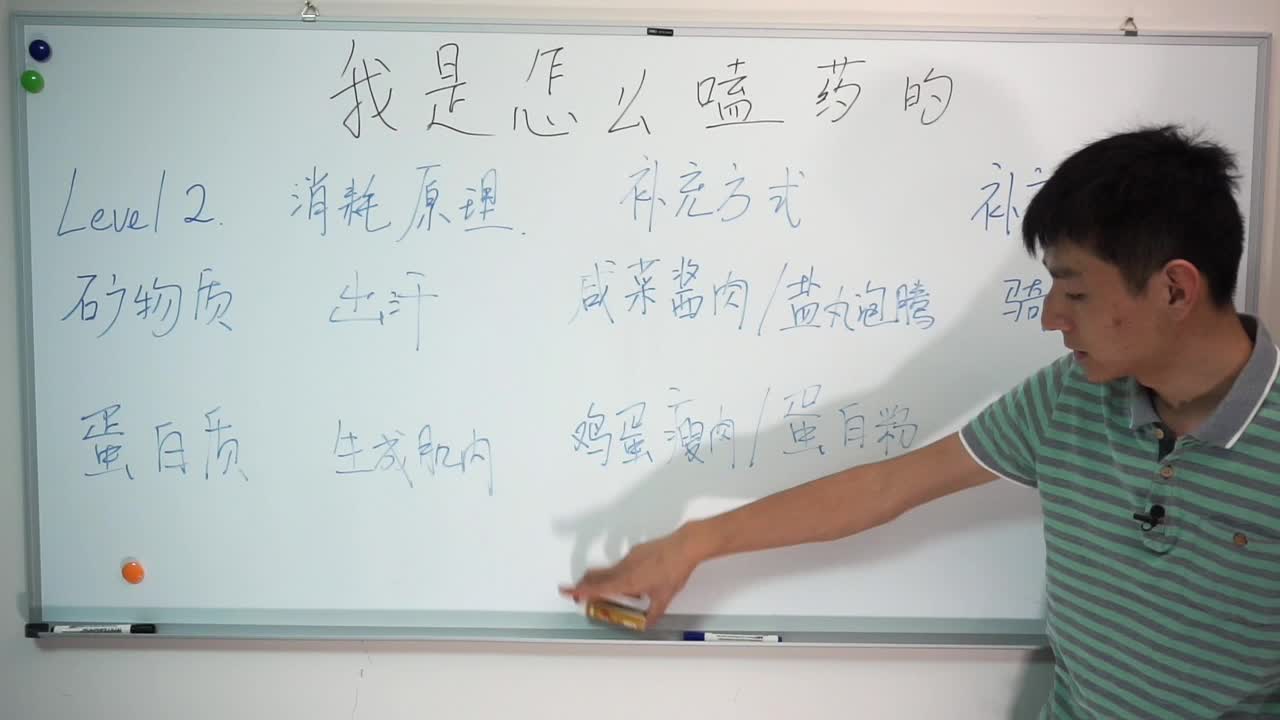 我是怎么嗑药的
Level 2. 消耗原理. 补充方式 补充
矿物质 出汗 咸菜酱肉/盐丸泡腾 骑
蛋白质 生成肌肉 鸡蛋瘦肉/蛋白粉